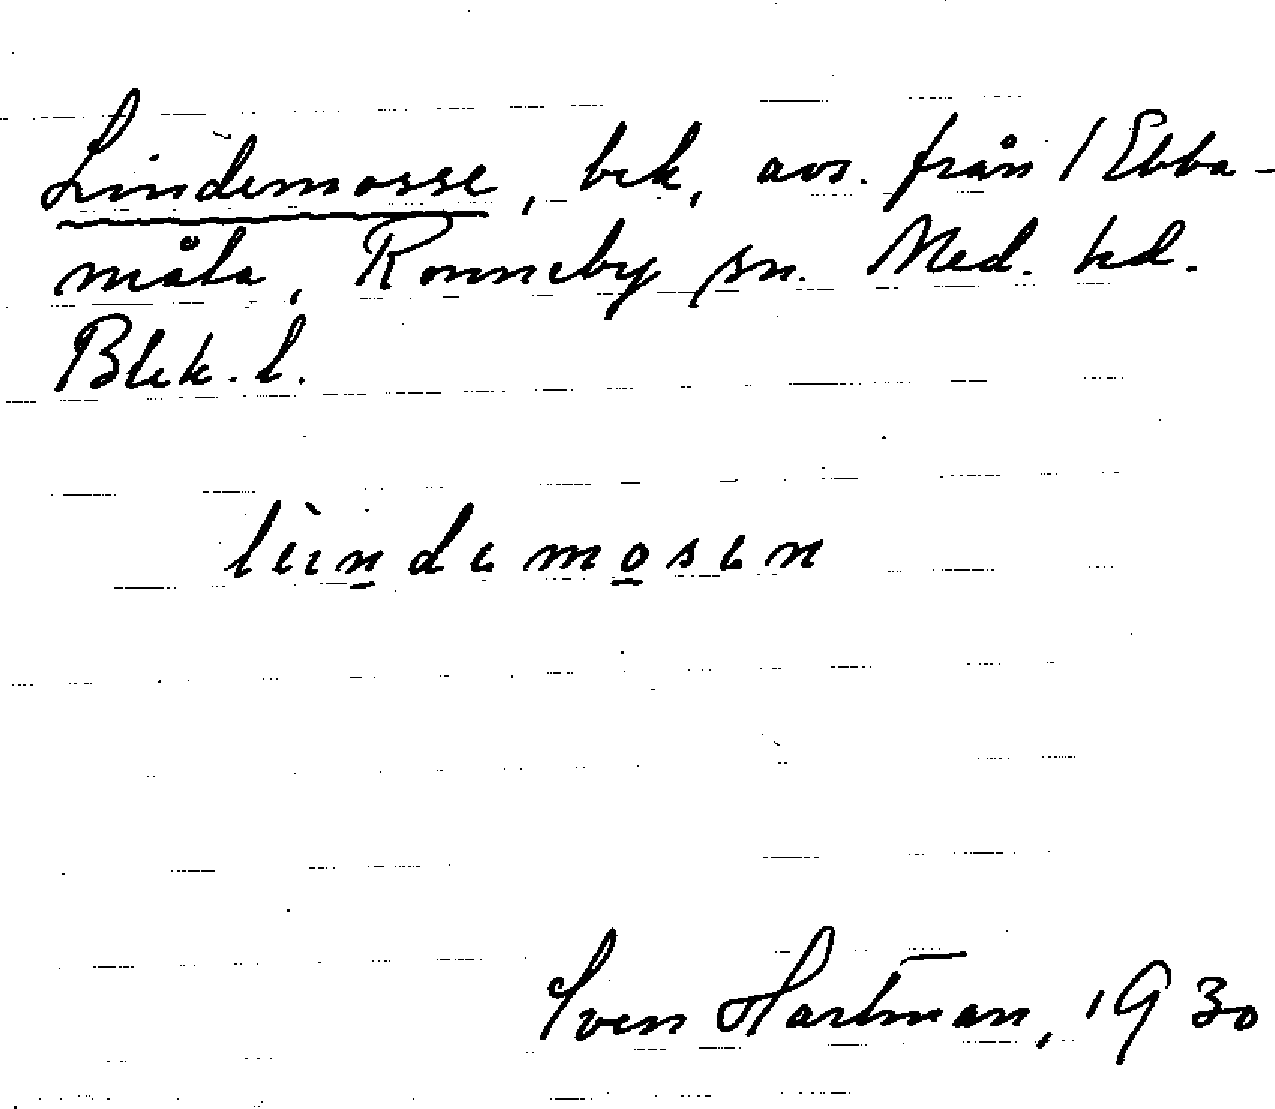 Lindemosse, bek, avs. från 1 Ebba-
måla, Ronneby sn. Med. hd.
Blek. l.
lìindemosen
Sven Hartman, 1930